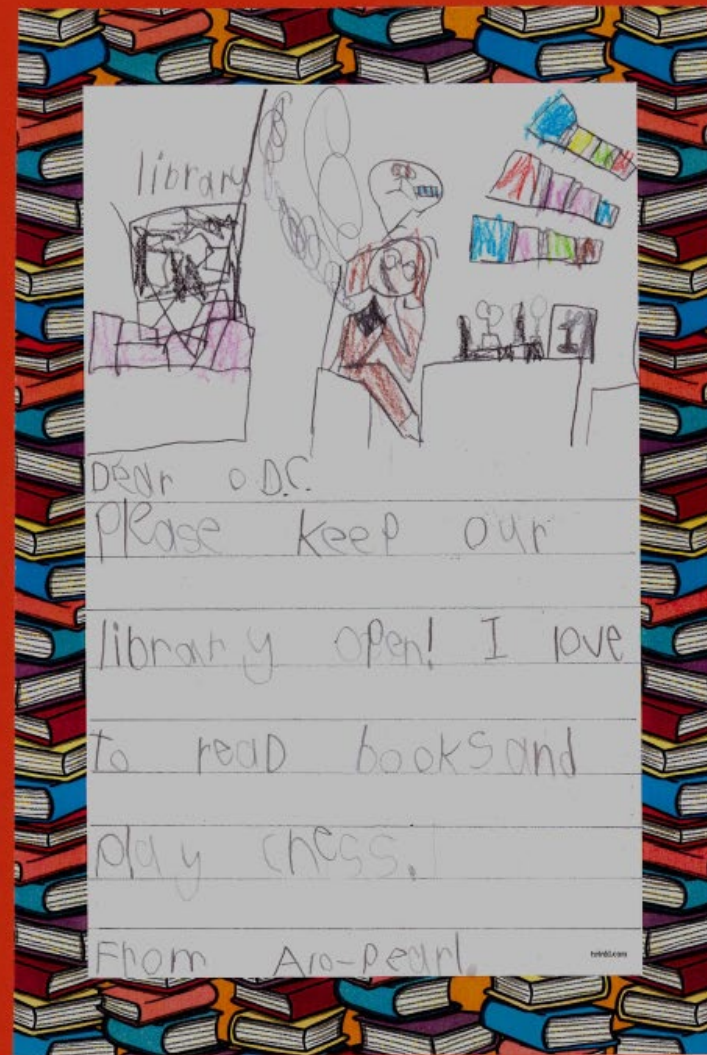 library
1
Dear O.D.C.
Please keep our
library open! I love
to read books and
play chess.
From Aro-Pearl
twinkl.com